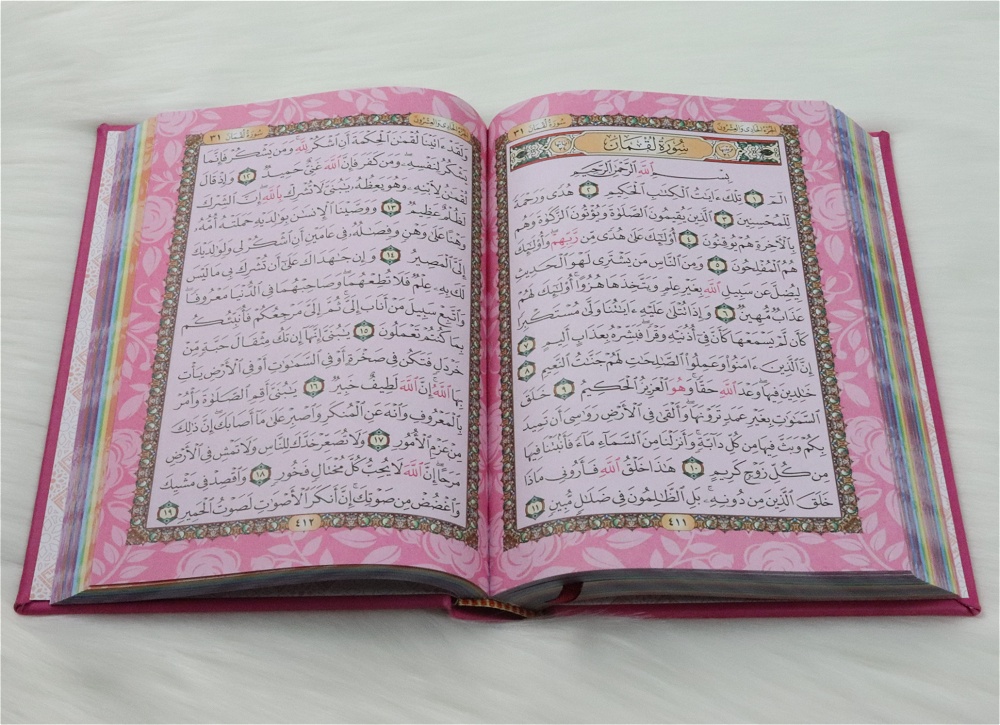 سورة لقمان ٣١
الجزء الحادي والعشرون
سُورَةُ لُقْمَانَ
بِسْمِ اللَّهِ الرَّحْمَٰنِ الرَّحِيمِ
الٓمٓ ١ تِلْكَ ءَايَٰتُ ٱلْكِتَٰبِ ٱلْحَكِيمِ ٢ هُدًى وَرَحْمَةً
لِّلْمُحْسِنِينَ ٣ ٱلَّذِينَ يُقِيمُونَ ٱلصَّلَوٰةَ وَيُؤْتُونَ ٱلزَّكَوٰةَ وَهُم
بِٱلْءَاخِرَةِ هُمْ يُوقِنُونَ ٤ أُو۟لَٰٓئِكَ عَلَىٰ هُدًى مِّن رَّبِّهِمْ ۖ وَأُو۟لَٰٓئِكَ
هُمُ ٱلْمُفْلِحُونَ ٥ وَمِنَ ٱلنَّاسِ مَن يَشْتَرِى لَهْوَ ٱلْحَدِيثِ
لِيُضِلَّ عَن سَبِيلِ ٱللَّهِ بِغَيْرِ عِلْمٍ وَيَتَّخِذَهَا هُزُوًا ۚ أُو۟لَٰٓئِكَ لَهُمْ
عَذَابٌ مُّهِينٌ ٦ وَإِذَا تُتْلَىٰ عَلَيْهِ ءَايَٰتُنَا وَلَّىٰ مُسْتَكْبِرًا
كَأَن لَّمْ يَسْمَعْهَا كَأَنَّ فِىٓ أُذُنَيْهِ وَقْرًا ۖ فَبَشِّرْهُ بِعَذَابٍ أَلِيمٍ ٧
إِنَّ ٱلَّذِينَ ءَامَنُوا۟ وَعَمِلُوا۟ ٱلصَّٰلِحَٰتِ لَهُمْ جَنَّٰتُ ٱلنَّعِيمِ ٨
خَٰلِدِينَ فِيهَا ۖ وَعْدَ ٱللَّهِ حَقًّا ۚ وَهُوَ ٱلْعَزِيزُ ٱلْحَكِيمُ ٩ خَلَقَ
ٱلسَّمَٰوَٰتِ بِغَيْرِ عَمَدٍ تَرَوْنَهَا ۖ وَأَلْقَىٰ فِى ٱلْأَرْضِ رَوَٰسِىَ أَن تَمِيدَ
بِكُمْ وَبَثَّ فِيهَا مِن كُلِّ دَآبَّةٍ ۚ وَأَنزَلْنَا مِنَ ٱلسَّمَآءِ مَآءً فَأَنۢبَتْنَا فِيهَا
مِن كُلِّ زَوْجٍ كَرِيمٍ ١٠ هَٰذَا خَلْقُ ٱللَّهِ فَأَرُونِى مَاذَا
خَلَقَ ٱلَّذِينَ مِن دُونِهِۦ ۚ بَلِ ٱلظَّٰلِمُونَ فِى ضَلَٰلٍ مُّبِينٍ ١١
٤١١
الجزء الحادي والعشرون
سورة لقمان ٣١
وَلَقَدْ ءَاتَيْنَا لُقْمَٰنَ ٱلْحِكْمَةَ أَنِ ٱشْكُرْ لِلَّهِ ۚ وَمَن يَشْكُرْ فَإِنَّمَا
يَشْكُرُ لِنَفْسِهِۦ ۖ وَمَن كَفَرَ فَإِنَّ ٱللَّهَ غَنِىٌّ حَمِيدٌ ١٢ وَإِذْ قَالَ
لُقْمَٰنُ لِٱبْنِهِۦ وَهُوَ يَعِظُهُۥ يَٰبُنَىَّ لَا تُشْرِكْ بِٱللَّهِ ۖ إِنَّ ٱلشِّرْكَ
لَظُلْمٌ عَظِيمٌ ١٣ وَوَصَّيْنَا ٱلْإِنسَٰنَ بِوَٰلِدَيْهِ حَمَلَتْهُ أُمُّهُۥ
وَهْنًا عَلَىٰ وَهْنٍ وَفِصَٰلُهُۥ فِى عَامَيْنِ أَنِ ٱشْكُرْ لِى وَلِوَٰلِدَيْكَ
إِلَىَّ ٱلْمَصِيرُ ١٤ وَإِن جَٰهَدَاكَ عَلَىٰٓ أَن تُشْرِكَ بِى مَا لَيْسَ
لَكَ بِهِۦ عِلْمٌ فَلَا تُطِعْهُمَا ۖ وَصَاحِبْهُمَا فِى ٱلدُّنْيَا مَعْرُوفًا ۖ
وَٱتَّبِعْ سَبِيلَ مَنْ أَنَابَ إِلَىَّ ۚ ثُمَّ إِلَىَّ مَرْجِعُكُمْ فَأُنَبِّئُكُم
بِمَا كُنتُمْ تَعْمَلُونَ ١٥ يَٰبُنَىَّ إِنَّهَآ إِن تَكُ مِثْقَالَ حَبَّةٍ مِّنْ
خَرْدَلٍ فَتَكُن فِى صَخْرَةٍ أَوْ فِى ٱلسَّمَٰوَٰتِ أَوْ فِى ٱلْأَرْضِ يَأْتِ
بِهَا ٱللَّهُ ۚ إِنَّ ٱللَّهَ لَطِيفٌ خَبِيرٌ ١٦ يَٰبُنَىَّ أَقِمِ ٱلصَّلَوٰةَ وَأْمُرْ
بِٱلْمَعْرُوفِ وَٱنْهَ عَنِ ٱلْمُنكَرِ وَٱصْبِرْ عَلَىٰ مَآ أَصَابَكَ ۖ إِنَّ ذَٰلِكَ
مِنْ عَزْمِ ٱلْأُمُورِ ١٧ وَلَا تُصَعِّرْ خَدَّكَ لِلنَّاسِ وَلَا تَمْشِ فِى ٱلْأَرْضِ
مَرَحًا ۖ إِنَّ ٱللَّهَ لَا يُحِبُّ كُلَّ مُخْتَالٍ فَخُورٍ ١٨ وَٱقْصِدْ فِى مَشْيِكَ
وَٱغْضُضْ مِن صَوْتِكَ ۚ إِنَّ أَنكَرَ ٱلْأَصْوَٰتِ لَصَوْتُ ٱلْحَمِيرِ ١٩
٤١٢